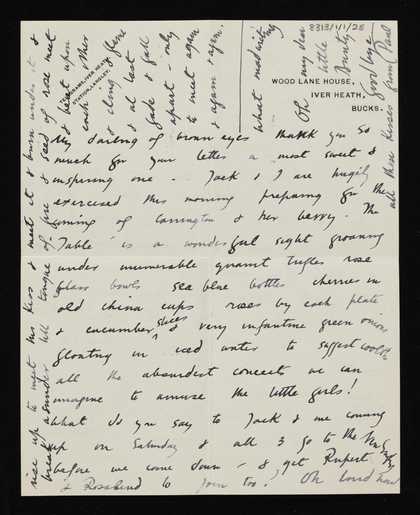 8313/1/1/28
WOOD LANE HOUSE,
IVER HEATH,
BUCKS.
STATION, LANGLEY.
My darling of brown eyes thank you so
much for your letter a most sweet &
inspiring one. Jack & I are hugily
exercised this morning preparing for the
coming of Carrington & her bevy. The
Table is a wonderful sight groaning
under innumerable gourmt trifles rose
glass bowls sea blue bottles cherries in
old china cups roses by each plate
& cucumber slices & very infantine green onions
floating in iced water to suggest
all the absurdest conceit we can
imagine to amuse the little girls!
What do you say to Jack & me coming
up on Saturday & all 3 go to the
before we come down - & get Rupert
& Rosalind to join too. Oh lord how
rise up to meet his kiss & meet it & burn under it &
break asunder till tongue of fire & seed of rose meet
& beat upon
each other
& cling & flare
& at last
fade & fall
apart - only
to meet again
& again & again.
what mad writing
Oh my dear
little
Bunty
Goodbye
all these kisses from Paul